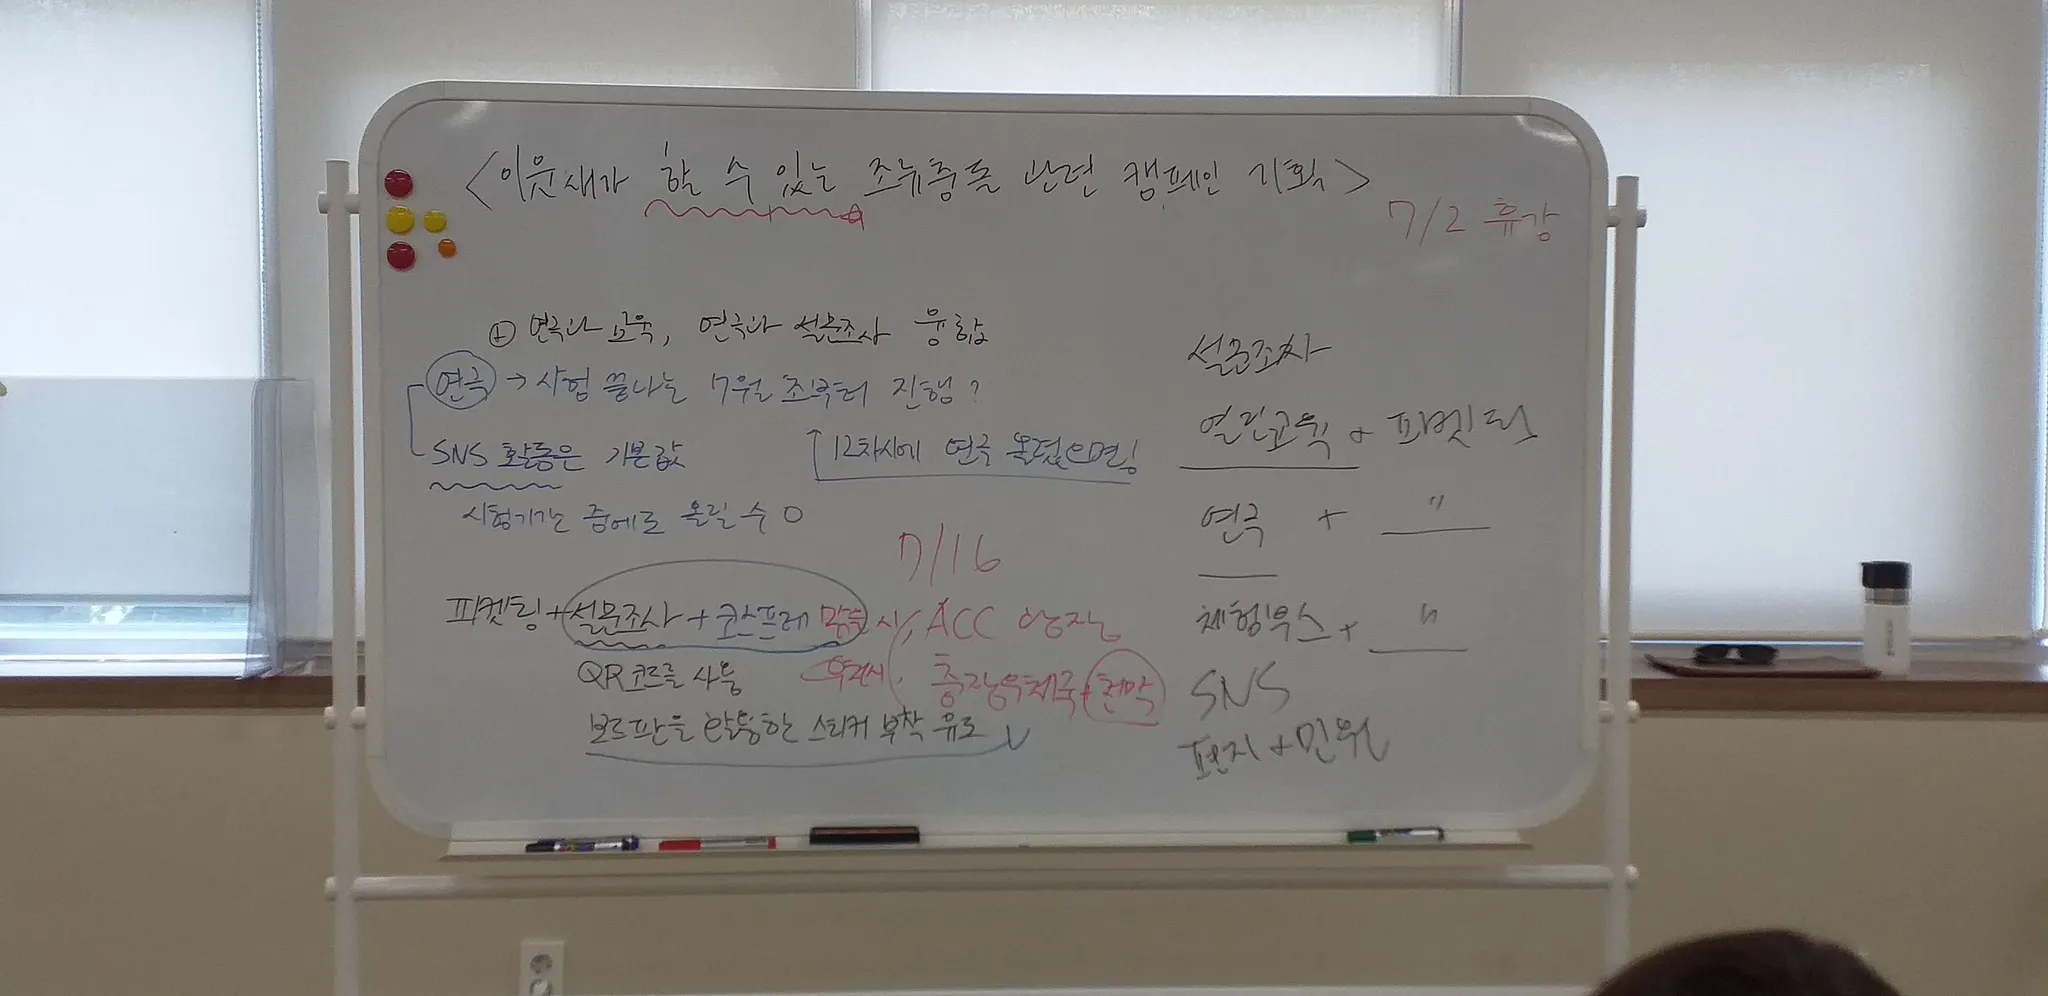 <이웃새가 할 수 있는 조류충돌 관련 캠페인 기획>
7/2 휴강
+ 연극과 교육, 연극과 설문조사 융합
연극 → 시험 끝나는 7월 초부터 진행?
12차시에 연극 올렸으면!
SNS 활동은 기본값
시험기간 중에도 올릴 수 O
7/16
피켓팅+설문조사+코스프레
QR코드를 사용
보드판을 활용한 스티커 부착 유도
ACC 상지는
충장우체국+천막
설문조사
열린교육 + 피켓팅
연극 + "
체험부스 + "
SNS
편지+민원